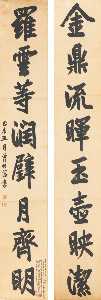 金鼎流暉玉壺映潔
羅雲等潤璧月齊明